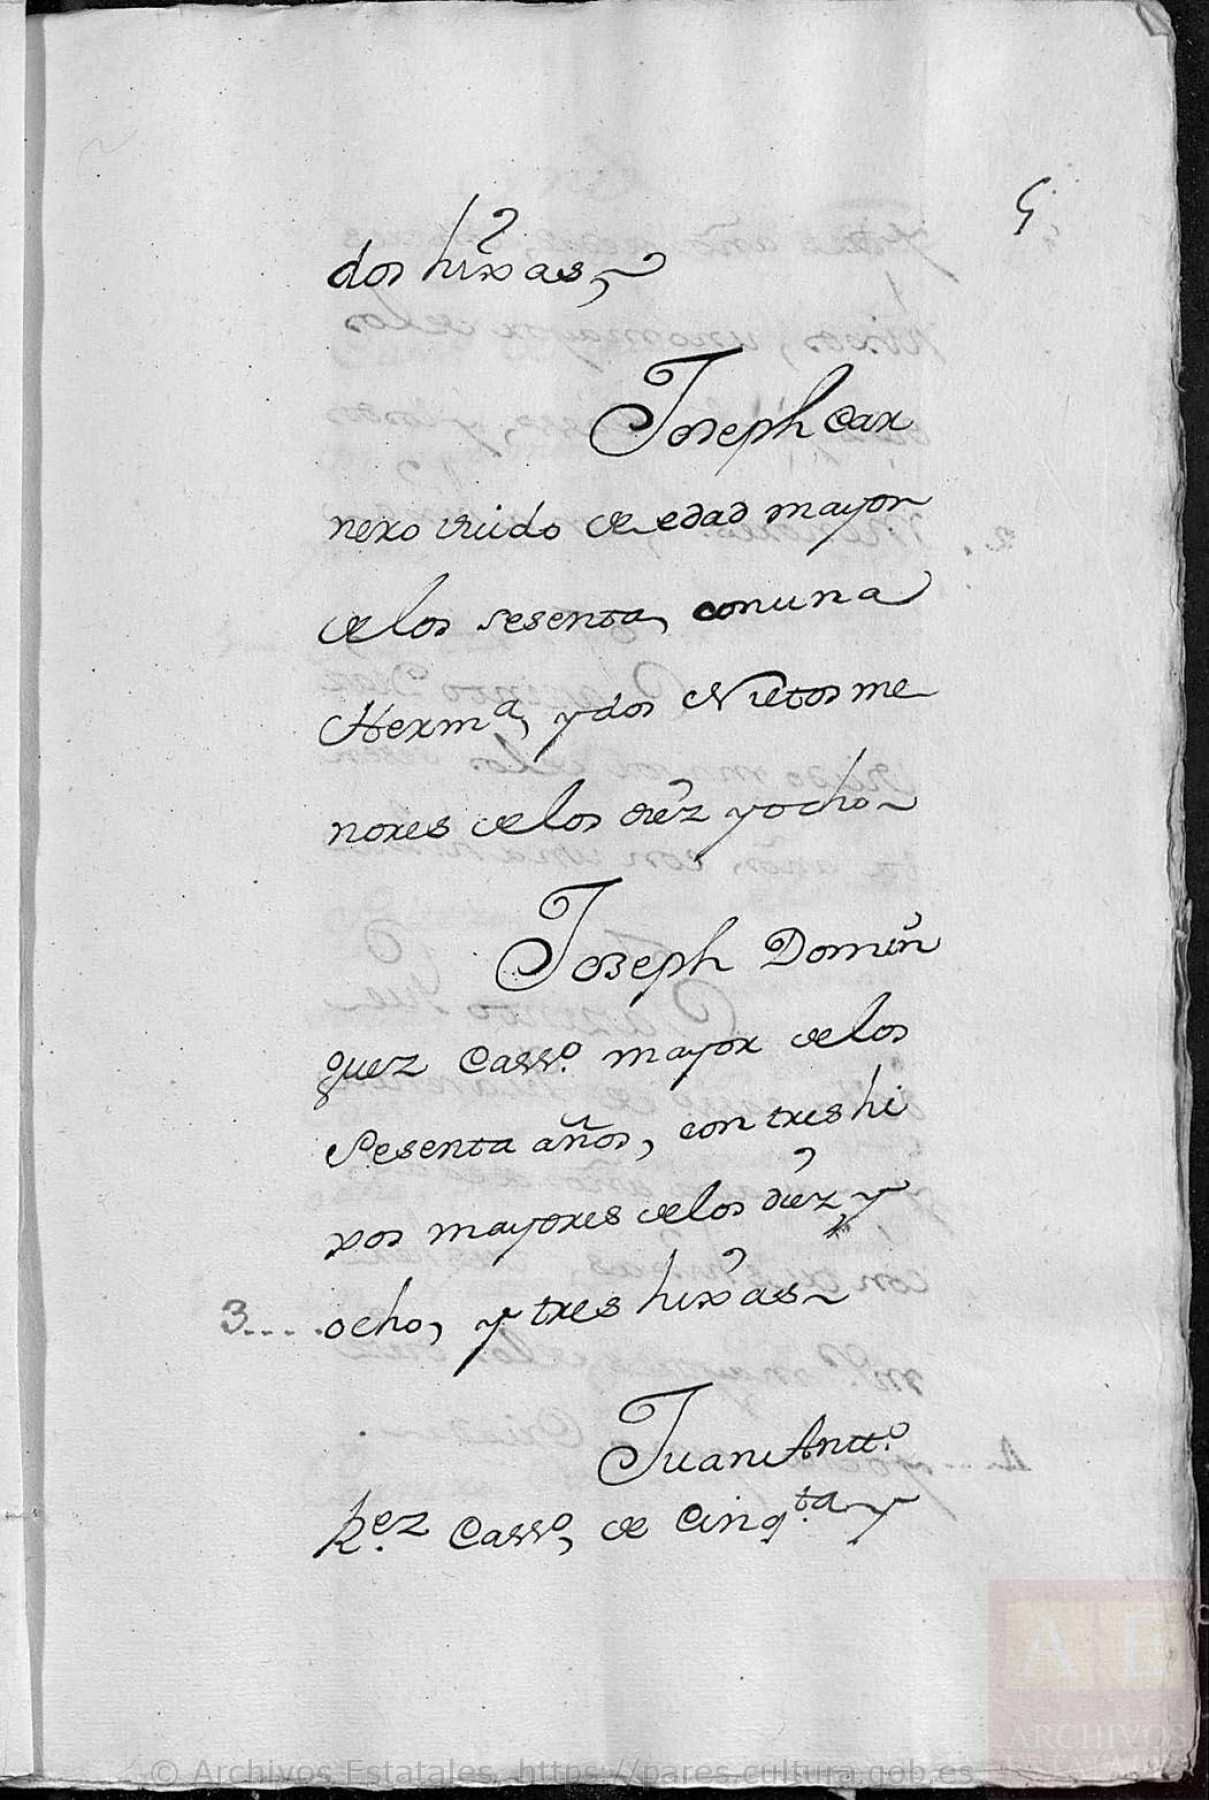 5
dos hixas,
Joseph Car
nero viudo de edad mayor
de los sesenta, con una
Herm.a, y dos Nietos me
nores de los diez y ocho
Joseph Domin
guez Cass.o mayor de los
Sesenta años, con tres hi
xos mayores de los diez y
3.... ocho, y tres hixas
Juan Antt.o
Pez Cass.o, de Cinq.ta y
AE
ARCHIVOS
ESTATALES
© Archivos Estatales, https://pares.cultura.gob.es